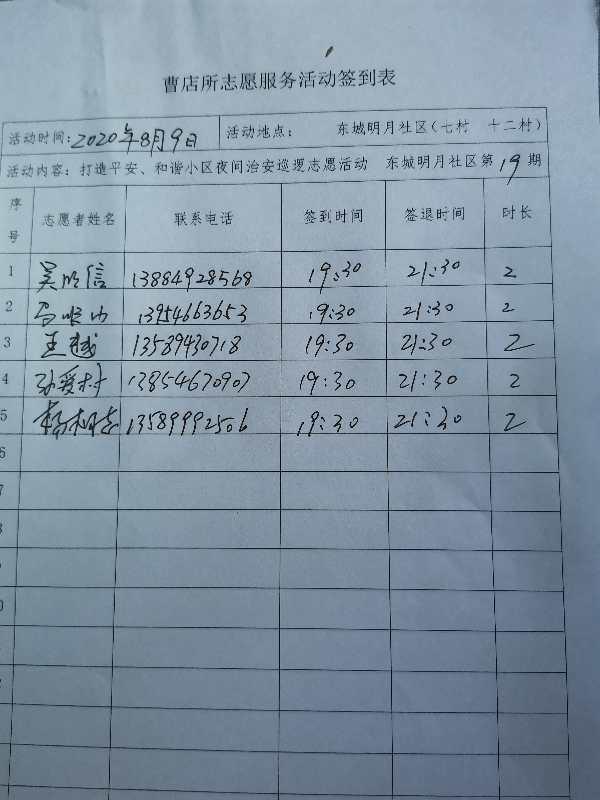 曹店所志愿服务活动签到表
活动时间: 2020年8月9日 活动地点: 东城明月社区(七村 十二村)
活动内容: 打造平安、和谐小区夜间治安巡逻志愿活动 东城明月社区第19期
序号 志愿者姓名 联系电话 签到时间 签退时间 时长
1 吴欣信 13884928568 19:30 21:30 2
2 13954663653 19:30 21:30 2
3 王越 13589430718 19:30 21:30 2
4 孙爱村 13854670907 19:30 21:30 2
5 13589992506 19:30 21:30 2
6
7
8
9